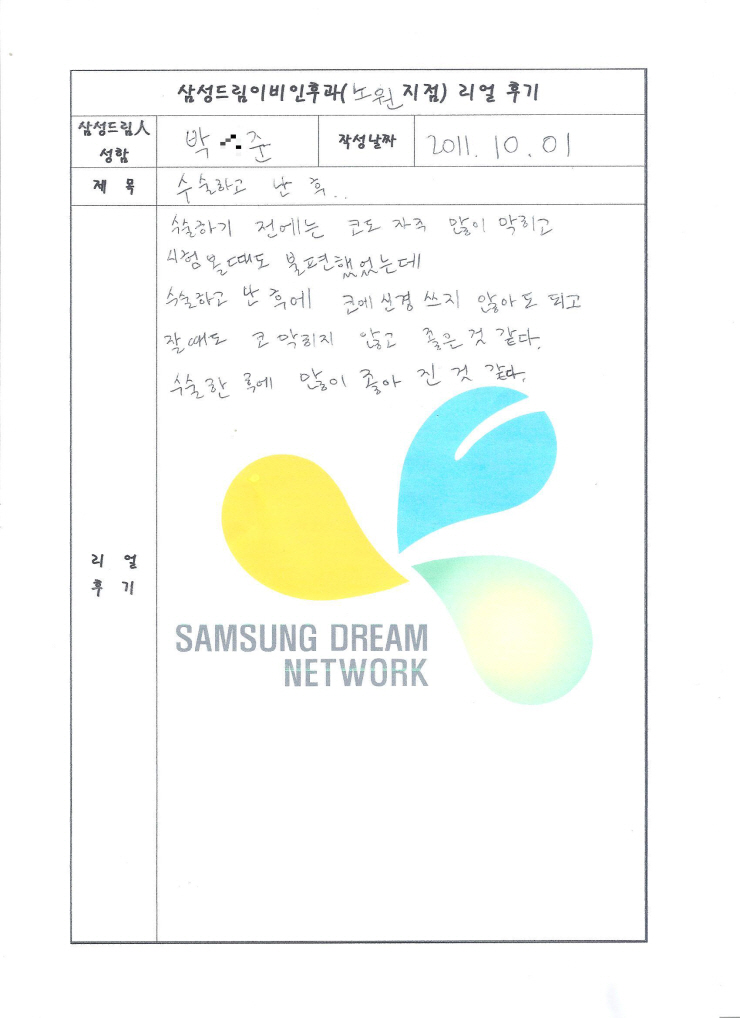 삼성드림이비인후과(노원지점) 리얼 후기
삼성드림人 성함
박 준
작성날짜
2011. 10. 01
제 목
수술하고 난 후..
리 얼 후 기
수술하기 전에는 코도 자주 많이 막히고
시험 볼때도 불편했었는데
수술하고 난 후에 코에 신경 쓰지 않아도 되고
잘때도 코 막히지 않고 좋은 것 같다.
수술한 후에 많이 좋아 진 것 같다.
SAMSUNG DREAM
NETWORK